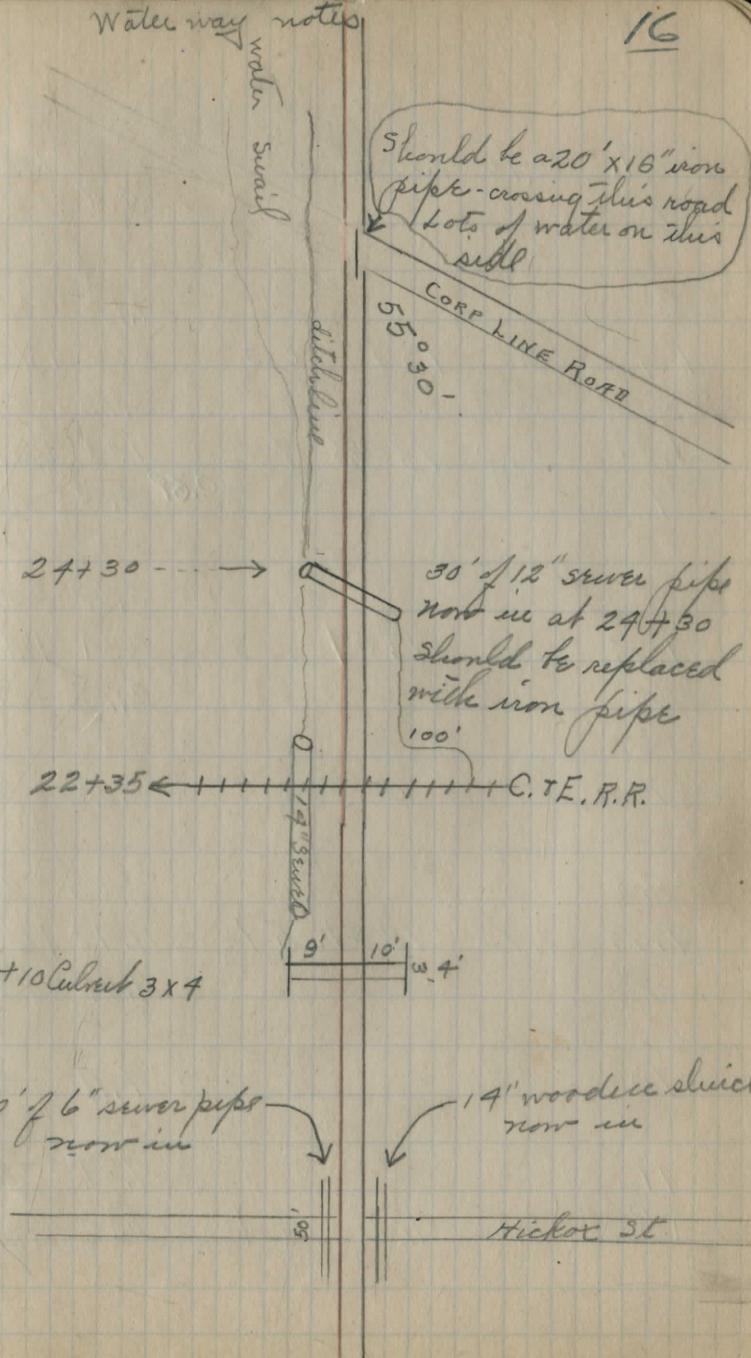 Water way notes
16
water swail
Should be a 20' x 16" iron
pipe - crossing this road
Lots of water on this
side
CORP LINE ROAD
55° 30'
ditch line
24+30
30' of 12" sewer pipe
now in at 24+30
should be replaced
with iron pipe
100'
22+35
C. & E. R.R.
Sewer
9'
10'
3' 4'
+10 Culvert 3 x 4
' of 6" sewer pipe
now in
14" wooden sluic
now in
50'
Hickox St